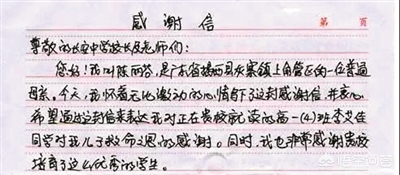 感谢信
第 页
尊敬的长安中学校长及老师们:
您好!我叫陈丽芬,是广东省揭西县灰寨镇上角管区的一位普通
母亲。今天,我怀着无比激动的心情写下了这封感谢信,并衷心
希望通过这封信来表达我对正在贵校就读的高一(4)班李艾佳
同学对我儿子救命之恩的感谢。同时,我也非常感谢贵校
培育了这么优秀的学生。